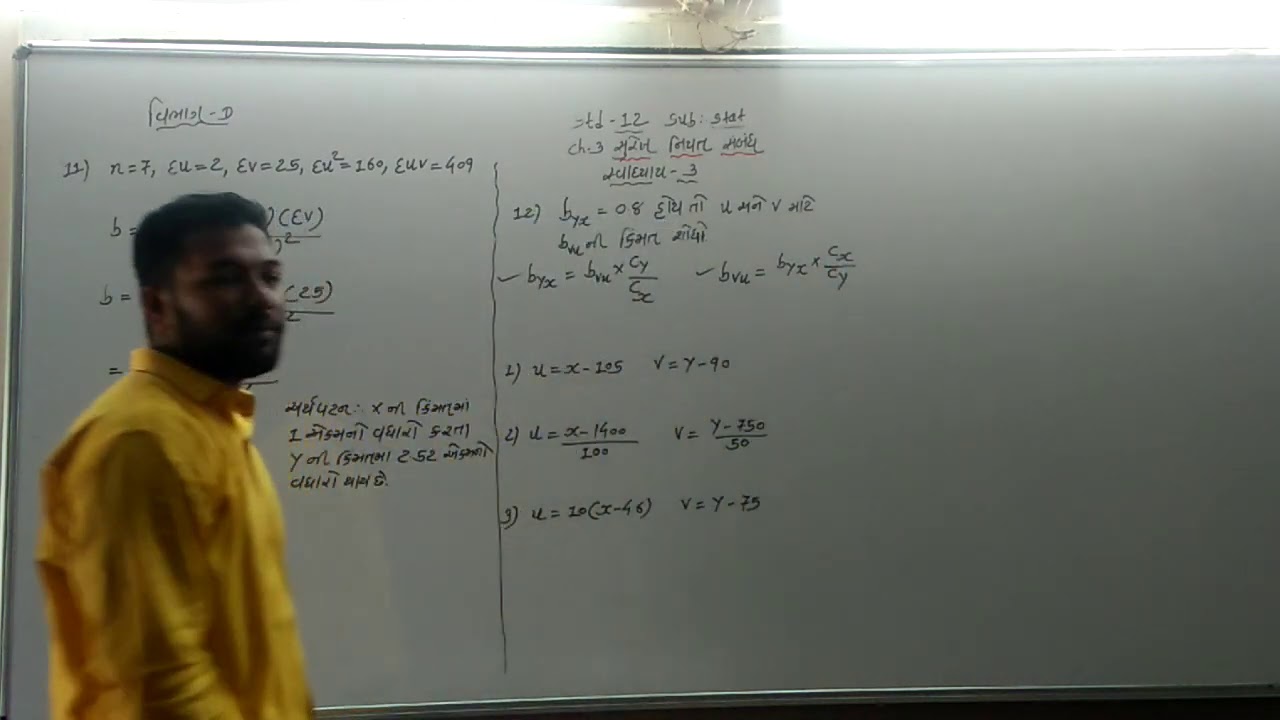 વિભાગ-D
11) n=7, Σu=2, Σv=25, Σu²=160, Σuv=409
b=
)(Σv)
)²
b=
(25)
2
=
અર્થઘટન: x ની કિંમતમાં
1 એકમનો વધારો કરતા
Y ની કિંમતમાં
વધારો થાય છે.
Std-12 Sub: Stat
Ch.3 સુરેખ નિયત સંબંધ
સ્વાધ્યાય-3
12) byx = 0.8 હોય તો u અને v માટે
bvu ની કિંમત શોધો.
✓ byx = bvu × Cy/Cx ✓ bvu = byx × Cx/Cy
1) u = x-105 v = Y-90
2) u = x-1400/100 v = Y-750/50
3) u = 10(x-46) v = Y-75